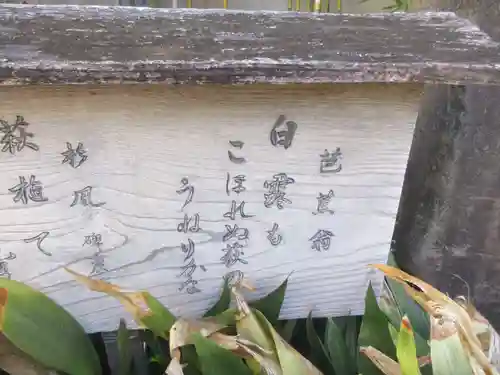 芭蕉翁
白露も
こほれぬ萩の
うねりかな
杉風
萩植て